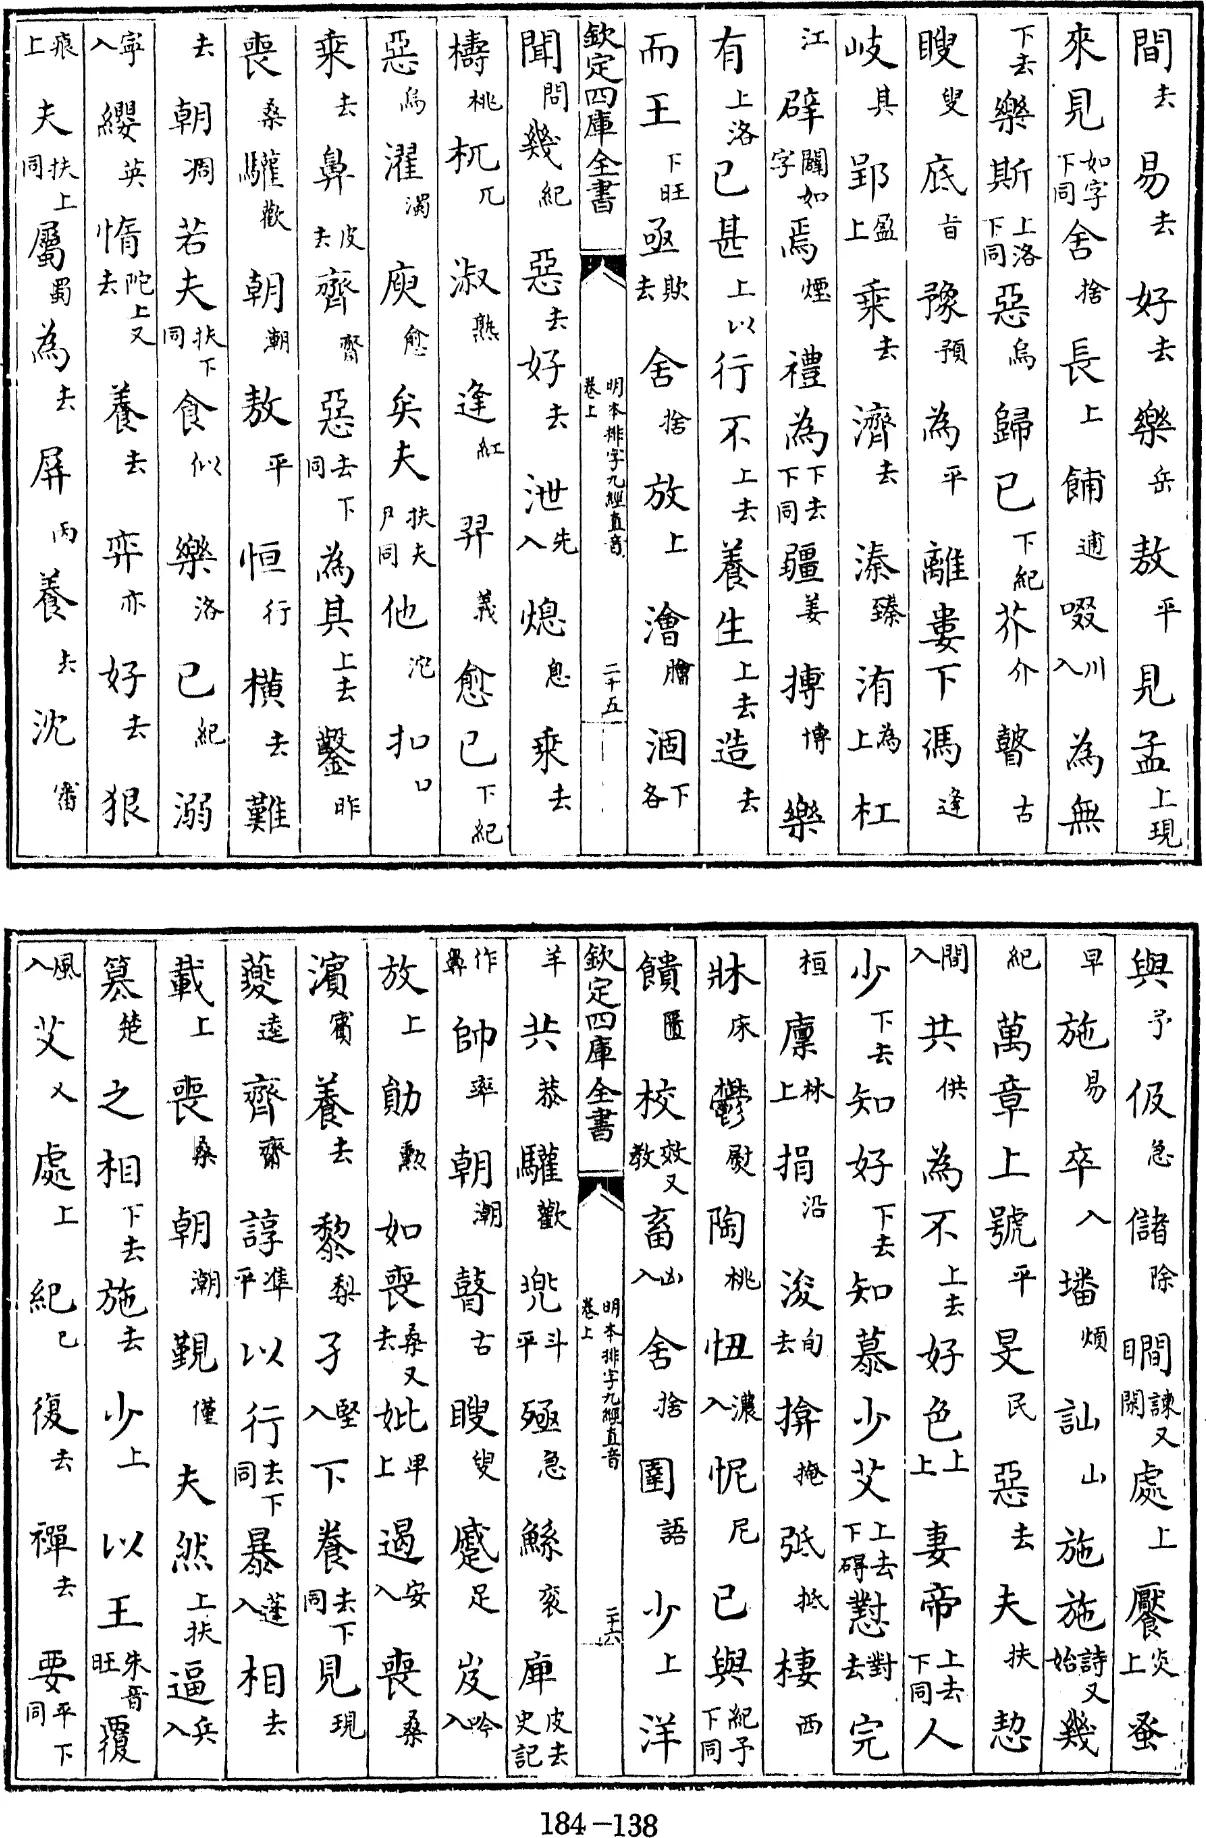 間去易去好去樂岳敖平見孟上現
來見如字下同舍捨長上餔逋啜川入為無
下去樂斯上洛下同惡烏歸已下紀芥介瞽古
瞍叟底旨豫預為平離婁下馮逢
岐其郢盈上乘去濟去溱臻洧為上杠
江辟闢如字焉煙禮為下去下同疆姜搏博樂
有上洛已甚上以行不上去養生上去造去
而王下旺亟欺去舍捨放上澮膾涸下各
欽定四庫全書 明本排字九經直音卷上 二十五
聞問幾紀惡去好去泄先入熄息乘去
檮桃杌兀淑熟逢紅羿義愈已下紀
惡烏濯濁庾愈矣夫扶夫尸同他沱扣口
乘去鼻皮去齊齋惡去下同為其上去鑿昨
喪桑驩歡朝潮敖平恒行橫去難
去朝凋若夫扶下同食似樂洛已紀溺
寧入纓英惰陀上又去養去弈亦好去狠
痕上夫扶上同屬蜀為去屏丙養去沈審
與予伋急儲除瞷諫又閑處上饜炎上蚤
早施易卒入墦煩訕山施施詩又始幾
紀萬章上號平旻民惡去夫扶恝
間入共供為不上去好色上上妻帝上去下同人
少下去知好下去知慕少艾上去下碍懟對去完
桓廩林上捐沿浚旬去揜掩弤抵棲西
牀床鬱熨陶桃忸濃入怩尼已與紀予下同
饋匱校效又教畜凶入舍捨圉語少上洋
欽定四庫全書 明本排字九經直音卷上 二十六
羊共恭驩歡兜斗平殛急鯀衮庳皮去史記
作鼻帥率朝潮瞽古瞍叟蹙足岌吟入
放上勛勲如喪桑又去妣卑上遏安入喪桑
濱賓養去黎梨孑堅入下養去下同見現
夔逵齊齋諄準平以行去下同暴蓬入相去
載上喪桑朝潮覲僅夫然上扶逼兵入
簒楚之相下去施去少上以王朱音旺覆
風入艾乂處上紀已復去禪去要平下同
184-138